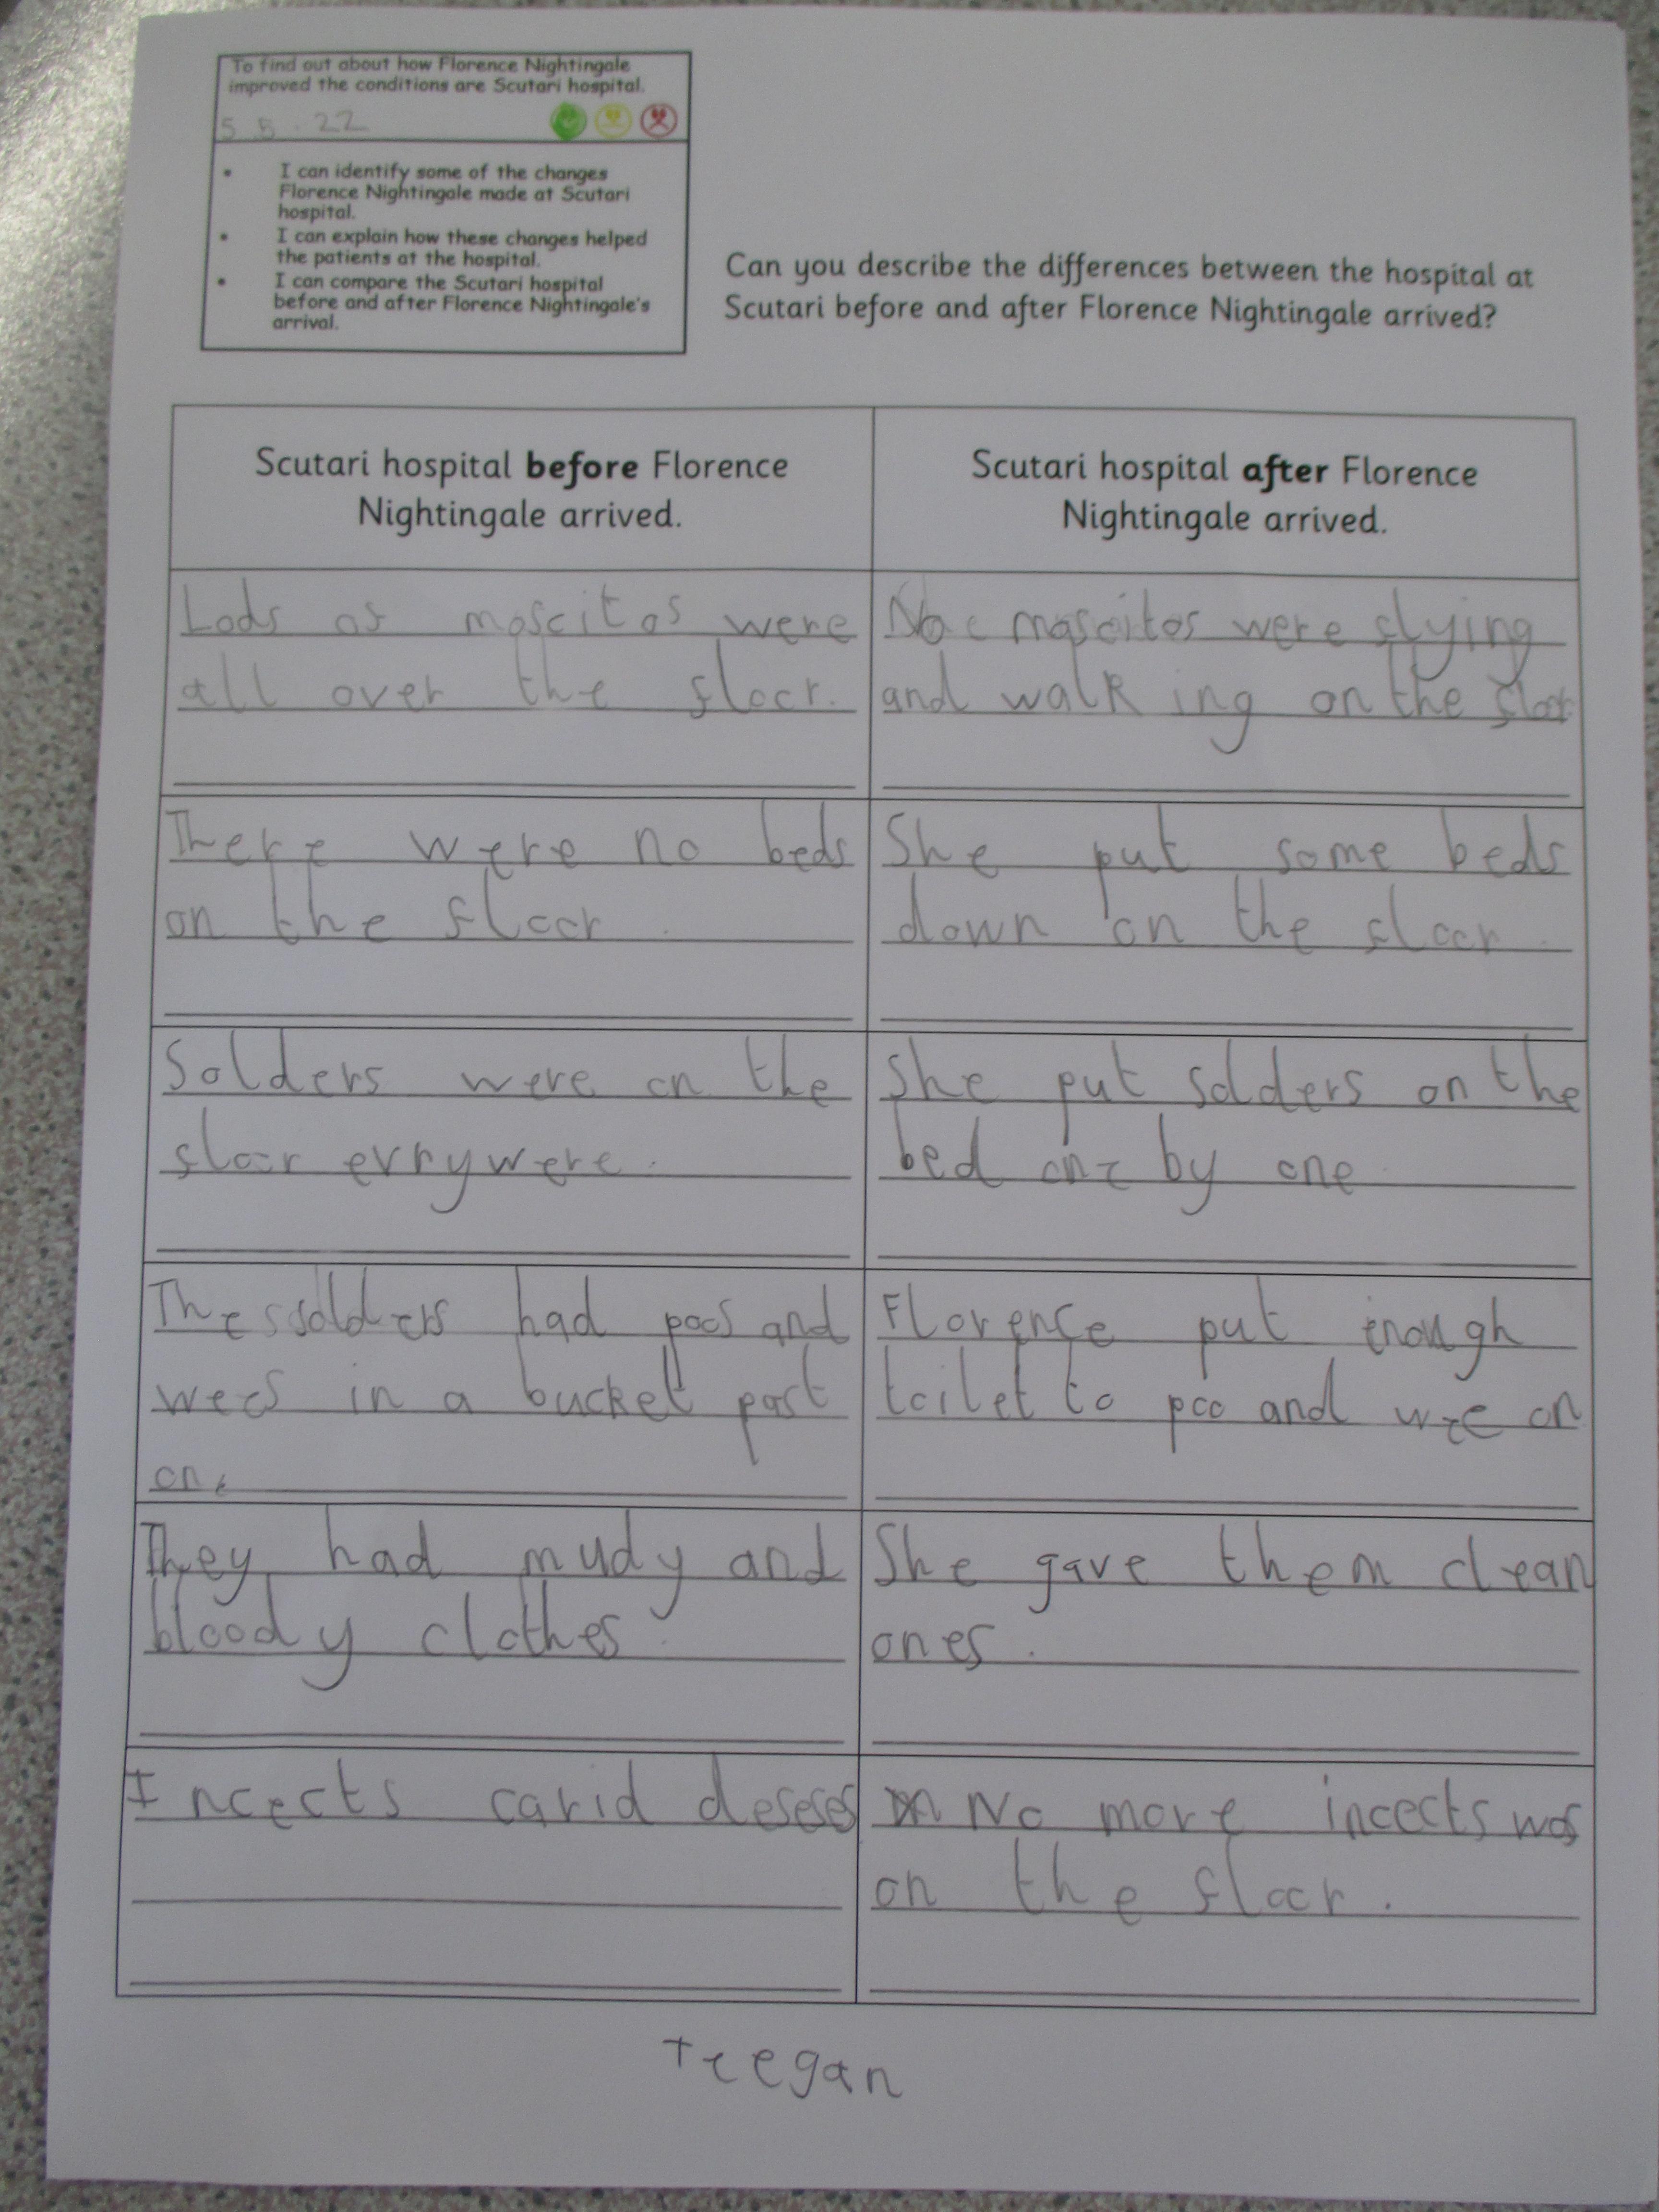 To find out about how Florence Nightingale
improved the conditions are Scutari hospital.
5.5.22
• I can identify some of the changes
Florence Nightingale made at Scutari
hospital.
• I can explain how these changes helped
the patients at the hospital.
• I can compare the Scutari hospital
before and after Florence Nightingale's
arrival.
Can you describe the differences between the hospital at
Scutari before and after Florence Nightingale arrived?
Scutari hospital before Florence
Nightingale arrived.
Scutari hospital after Florence
Nightingale arrived.
Lods of moscitos were
all over the floor.
No moscitos were flying
and walking on the floor
There were no beds
on the floor.
She put some beds
down on the floor.
Solders were on the
floor evrywere.
She put solders on the
bed one by one.
The solders had poos and
wees in a bucket
Florence put enough
toilet to poo and wee on
They had mudy and
bloody clothes.
She gave them clean
ones.
Incects carid deseses
No more incects was
on the floor.
Teegan